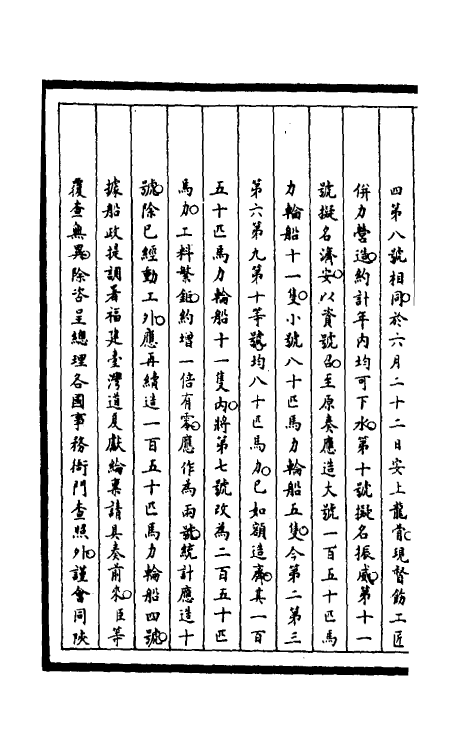 四第八號相同於六月二十二日安上龍骨現督飭工匠
併力營造約計年內均可下水第十號擬名振威第十一
號擬名濟安以資號召至原奏應造大號一百五十匹馬
力輪船十一隻小號八十匹馬力輪船五隻今第二第三
第六第九第十等號均八十匹馬力已如額造齊其一百
五十匹馬力輪船十一隻內將第七號改為二百五十匹
馬加工料繁鉅約增一倍有零應作為兩號統計應造十
號除已經動工外應再續造一百五十匹馬力輪船四號
據船政提調署福建臺灣道夏獻綸稟請具奏前來臣等
覆查無異除咨呈總理各國事務衙門查照外謹會同陜